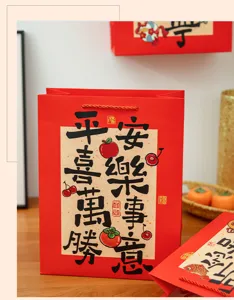 平安
喜樂
萬事
勝意